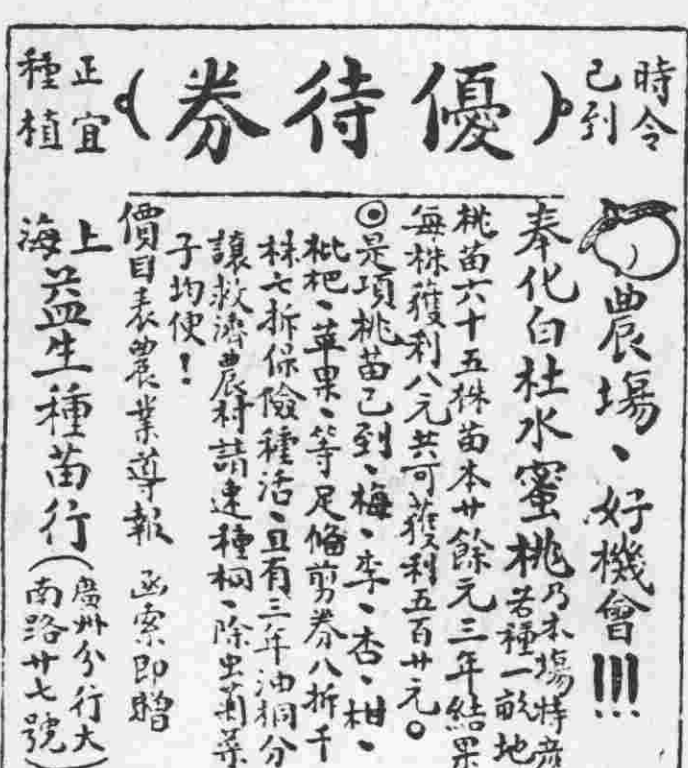 時令
已到
(優待券)
正宜
種植
農場、好機會!!!
奉化白杜水蜜桃乃本場特產
若種一畝地
桃苗六十五株苗本廿餘元三年結果
每株獲利八元共可獲利五百廿元。
◉是項桃苗已到、梅、李、杏、柑、
枇杷、苹果、等足備剪券八折千
株七折保險種活、且有三年油桐分
讓救濟農村請速種桐、除虫菊菜
子均便!
價目表農業導報 函索即贈
上海益生種苗行(廣州分行大
南路廿七號)